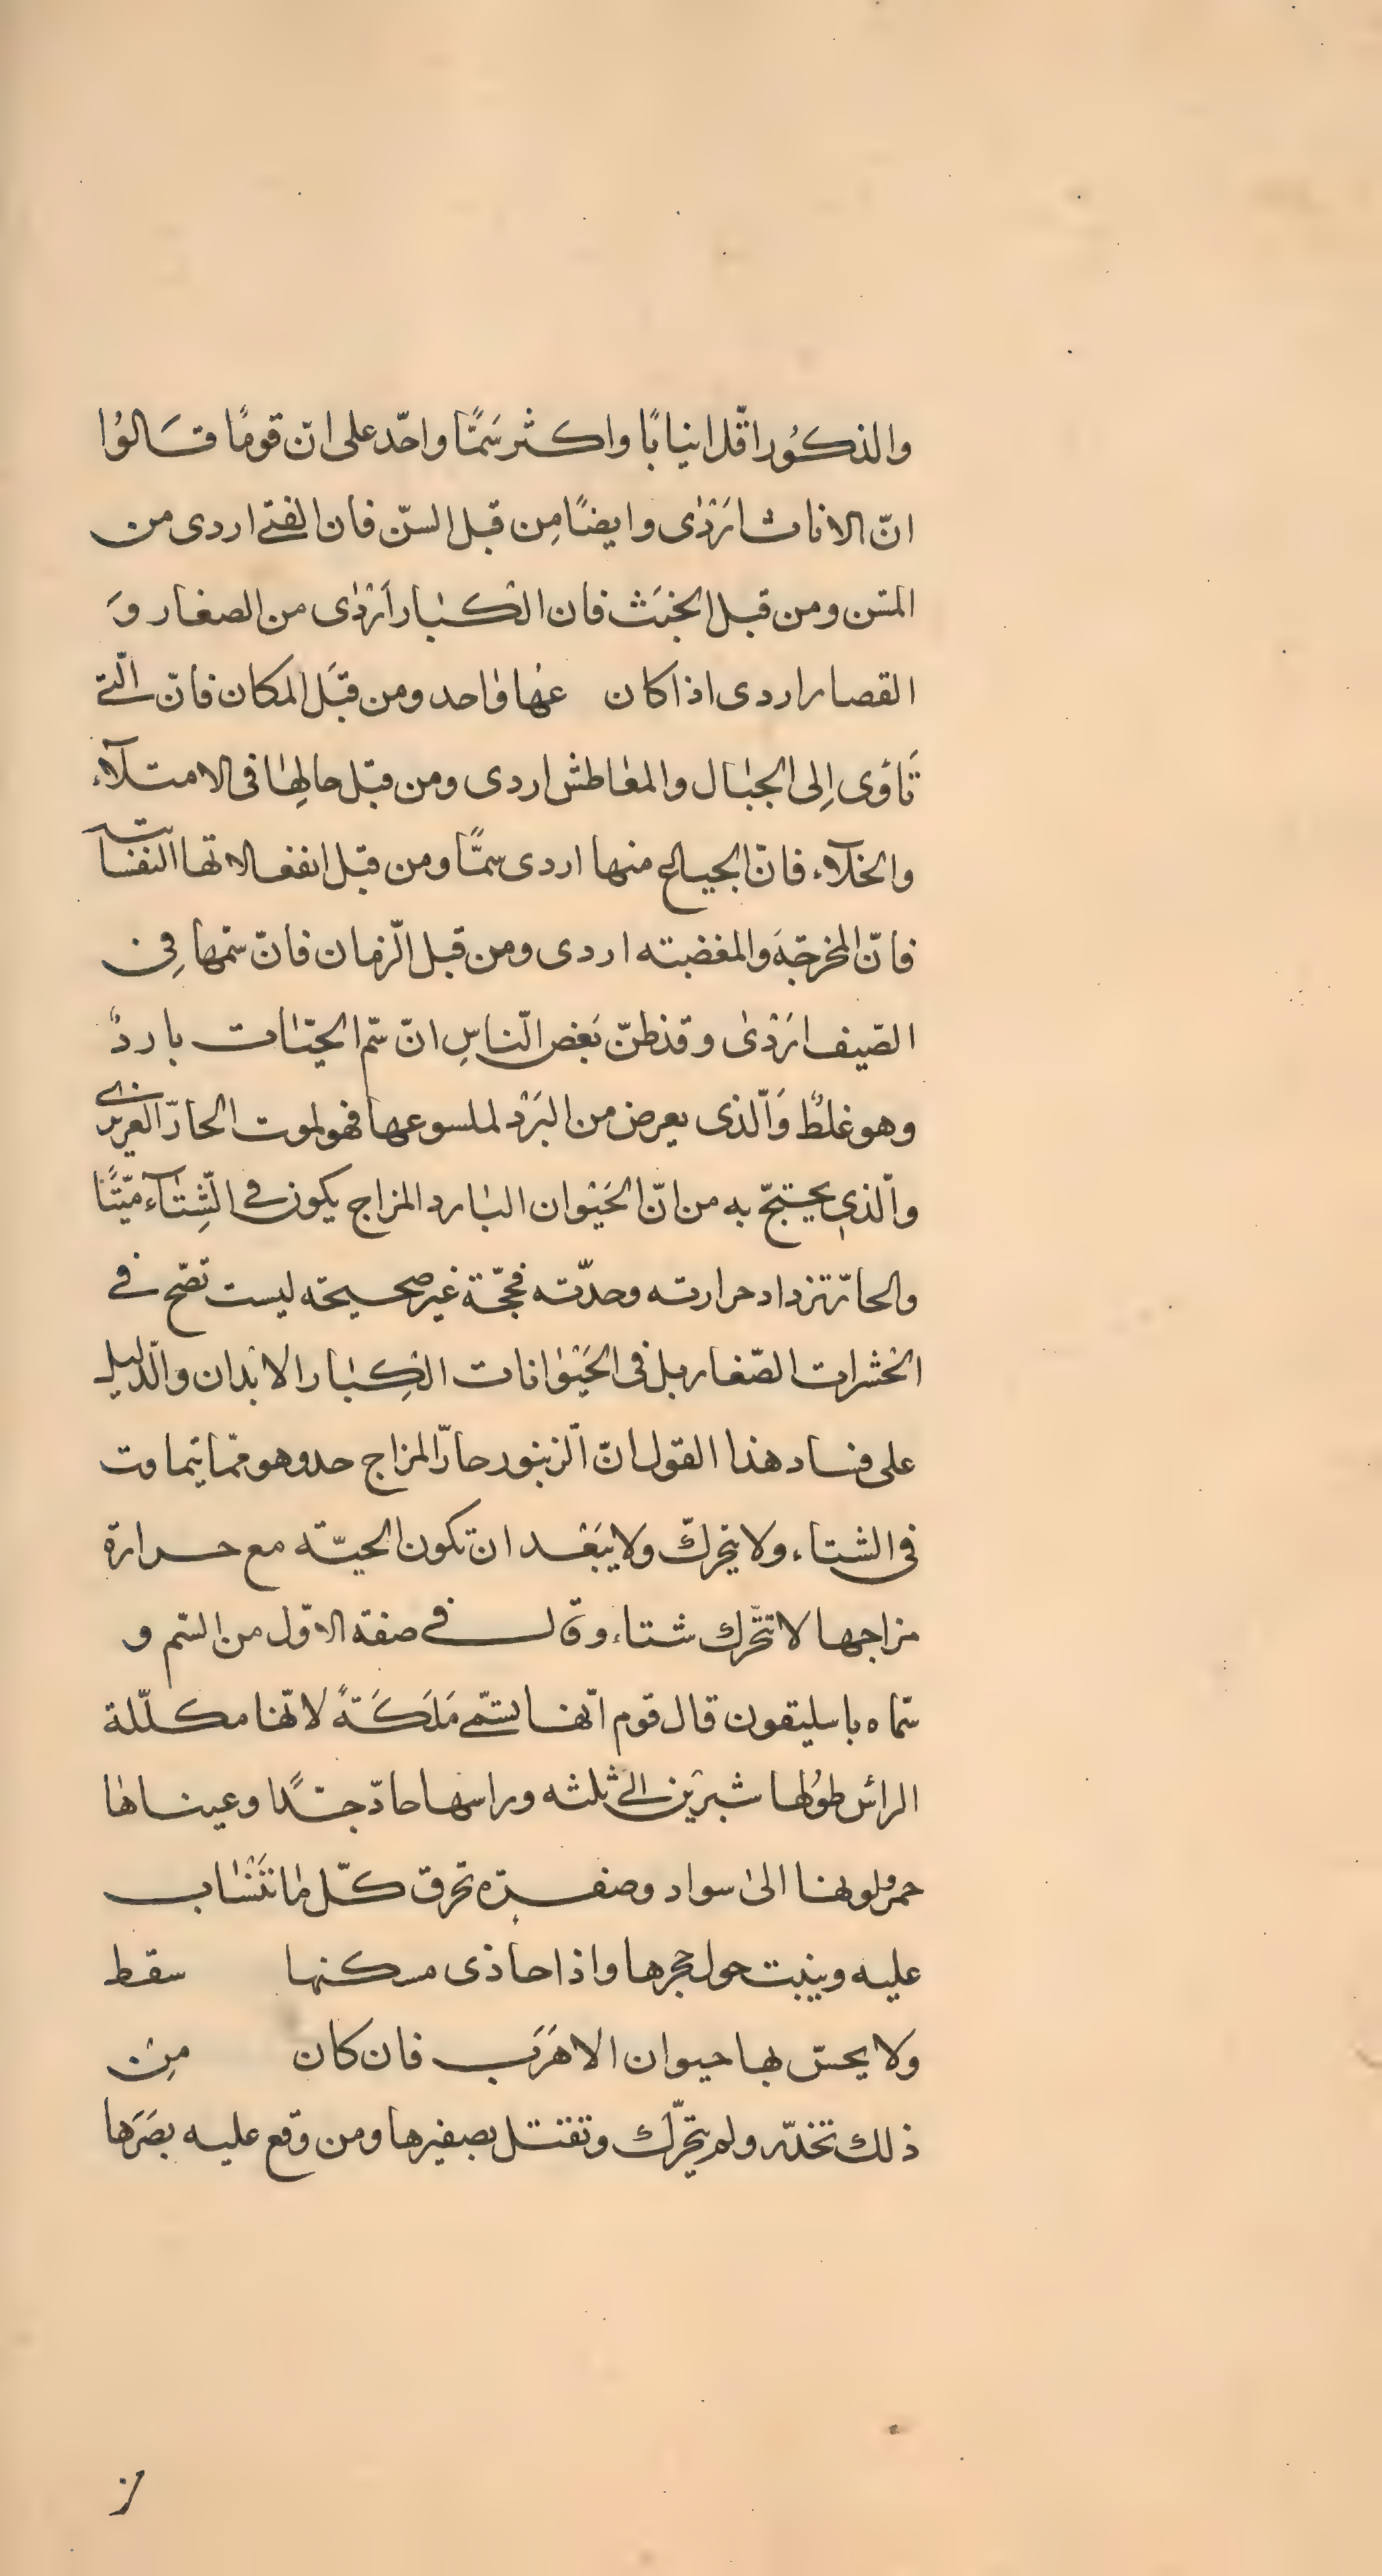 والذكُور اقّل انيابًا واكثر سَمًّا واحّد على انّ قومًا قَالوُا
انّ الاناث ارَدْى وايضًا مِن قبل السنّ فان الفتى اردى من
المسن ومن قبل الخبَث فان الكبار ارَدْى من الصغار وَ
القصار اردى اذا كان عهْا واحد ومن قبَل المكان فانّ الّتى
تَاوَى اِلى الجبال والمعاطش اردى ومن قبل حالِها فى الامتلآء
والخلآء فانّ الجياع منها اردى سمًّا ومن قبل انفعالاتها النفسانية
فانّ المخرجَة والمغضبته اردى ومن قبل الّزمان فانّ سمّها فِى
الصّيف ارَدْى وقد ظنّ بَعض الّناسِ انّ سّم الحيّات باردٌ
وهو غلطٌ وَالّذى يعرض من البَرْد لملسوعها فهو لموت الحارّ الغريزى
والّذى يحتجّ به من انّ الحَيْوان البارد المزاج يكون فى الشِّتآء ميّتًا
والحارّ تزداد حرارته وحدّته فحجّة غير صحيحة ليست تصّح فى
الحشرات الصّغار بل فى الحَيْوانات الكِبار الابْدان والّدليل
على فساد هذا القول انّ الّزنبور حارّ المزاج حد وهو ممّا يتماوت
فى الشتاء ولا يتحرّك ولا يبَعْد ان تكون الحيّة مع حرارة
مزاجها لا تتحّرك شتاء وقال فى صفة الاوّل من السّم و
سّماه باسليقون قال قوم انّها تسّمى مَلَكَةً لانّها مكلّلة
الرأس طوُلها شبرَين الى ثلثه وراسها حادّ جدًّا وعيناها
حمر ولونها الىٰ سواد وصفرة تحرق كلّ ما تَنْساب
عليه وينبت حول حجرها واذا حاذى مسكنها سقط
ولا يحسّ بها حيوان الا هَرَب فان كان مِن
ذلك تخدّر ولم يتحّرك وتقتل بصفيرها ومن وقع عليه بصَرَها